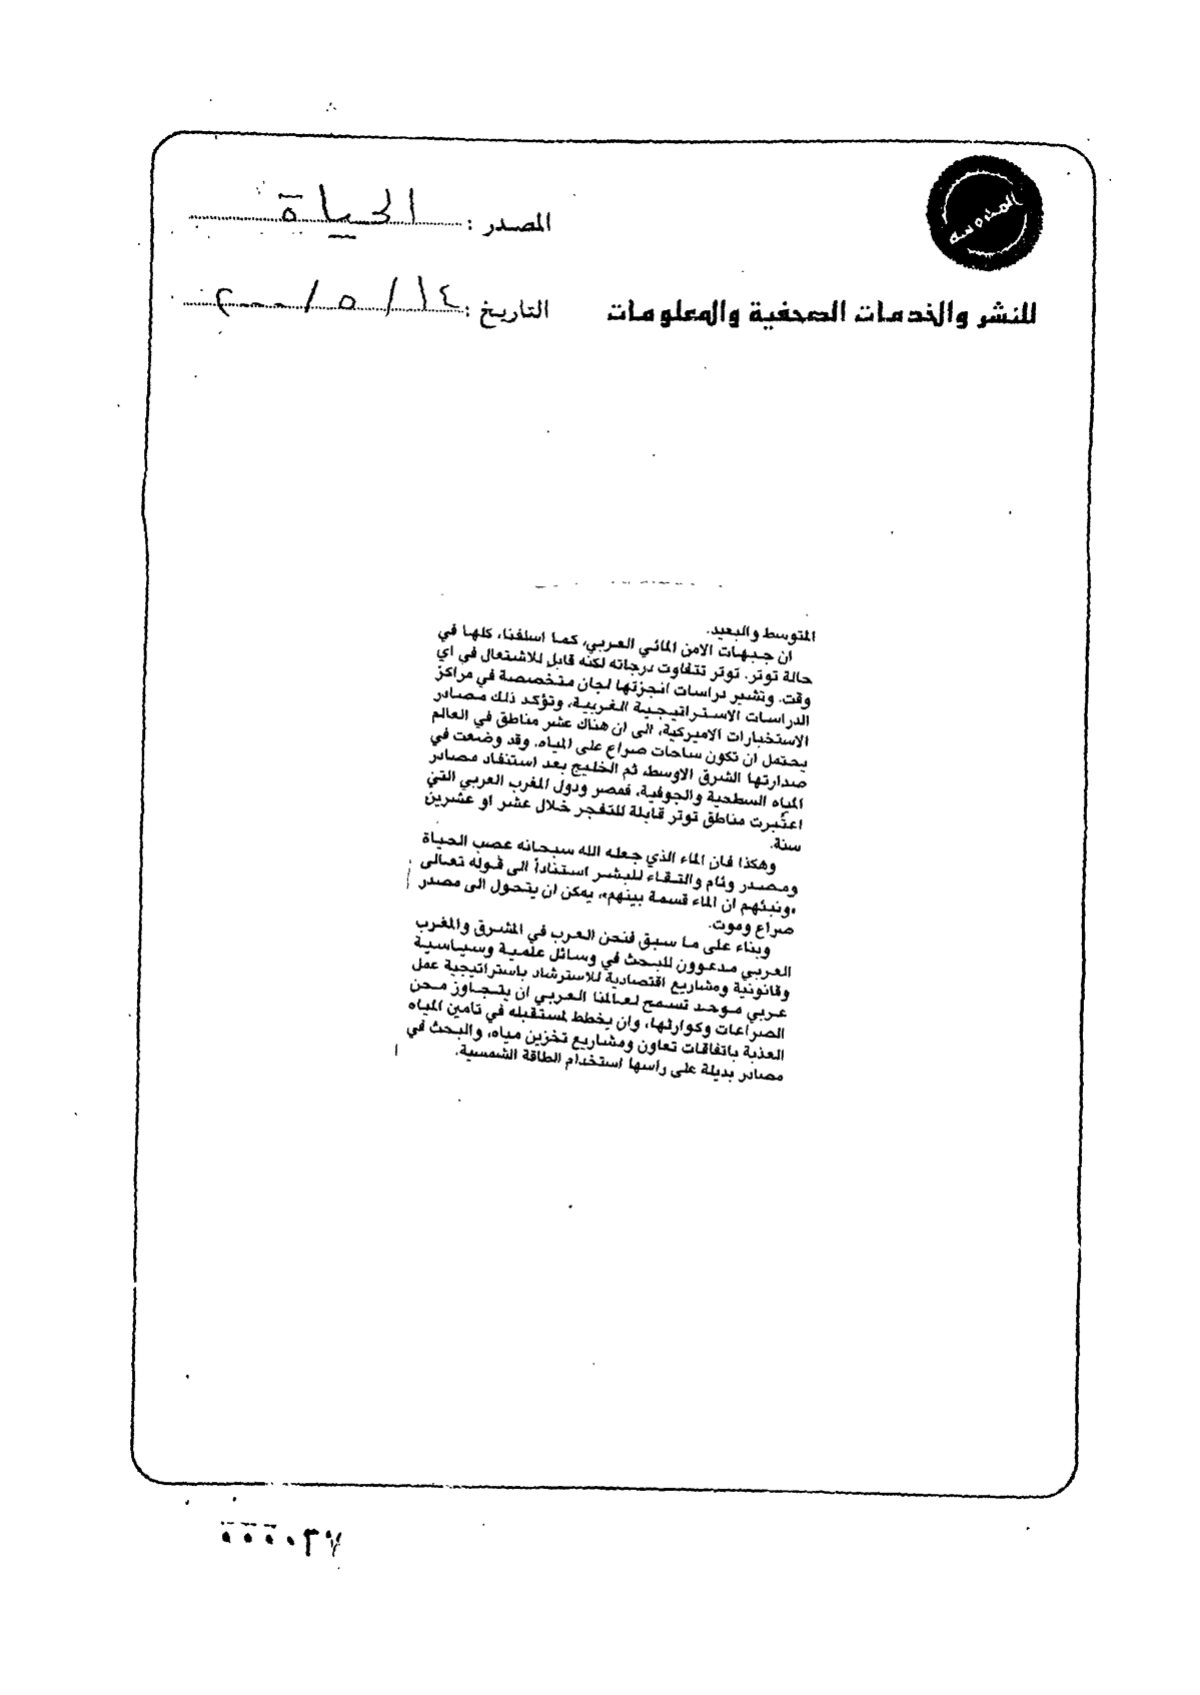 المحروسة
المصدر : الحياة
للنشر والخدمات الصحفية والمعلومات
التاريخ : ١٤ / ٥ / ٢٠٠٠
المتوسط والبعيد.
ان جبهات الامن المائي العربي، كما اسلفنا، كلها في
حالة توتر. توتر تتفاوت درجاته لكنه قابل للاشتعال في اي
وقت. وتشير دراسات انجزتها لجان متخصصة في مراكز
الدراسات الاستراتيجية الغربية، وتؤكد ذلك مصادر
الاستخبارات الاميركية، الى ان هناك عشر مناطق في العالم
يحتمل ان تكون ساحات صراع على المياه. وقد وضعت في
صدارتها الشرق الاوسط، ثم الخليج بعد استنفاد مصادر
المياه السطحية والجوفية، فمصر ودول المغرب العربي التي
اعتُبرت مناطق توتر قابلة للتفجر خلال عشر او عشرين
سنة.
وهكذا فان الماء الذي جعله الله سبحانه عصب الحياة
ومصدر وئام والتقاء للبشر استناداً الى قوله تعالى
«ونبئهم ان الماء قسمة بينهم»، يمكن ان يتحول الى مصدر
صراع وموت.
وبناء على ما سبق فنحن العرب في المشرق والمغرب
العربي مدعوون للبحث في وسائل علمية وسياسية
وقانونية ومشاريع اقتصادية للاسترشاد باستراتيجية عمل
عربي موحد تسمح لعالمنا العربي ان يتجاوز محن
الصراعات وكوارثها، وان يخطط لمستقبله في تامين المياه
العذبة باتفاقات تعاون ومشاريع تخزين مياه، والبحث في
مصادر بديلة على راسها استخدام الطاقة الشمسية.